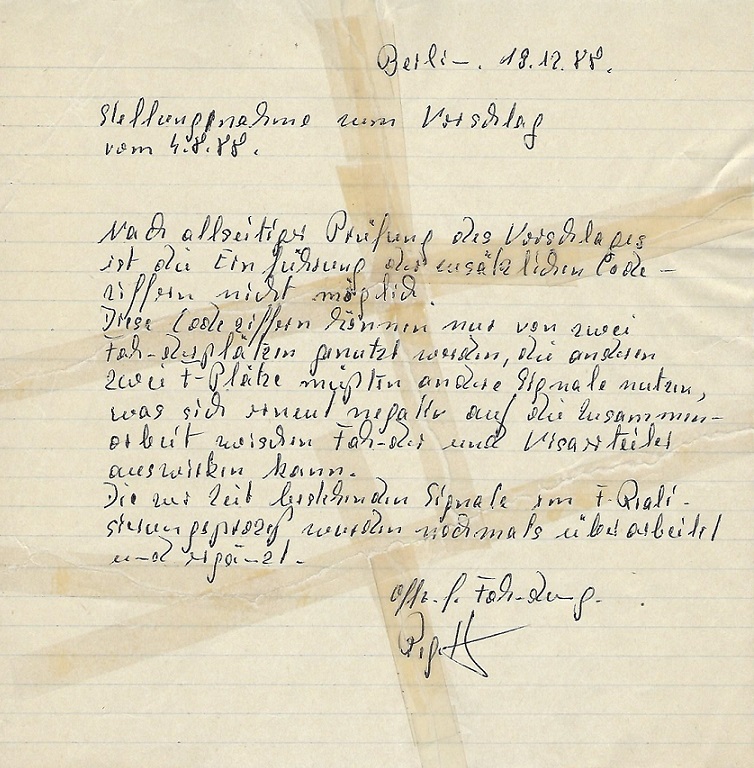 Berlin. 19.12.88.
Stellungsnahme zum Vorschlag
vom 4.8.88.
Nach allseitiger Prüfung des Vorschlages
ist die Einführung der zusätzlichen Code-
ziffern nicht möglich.
Diese Codeziffern können nur von zwei
Fahnderplätzen genutzt werden, die anderen
zwei F-Plätze müßten andere Signale nutzen,
was sich erneut negativ auf die Zusammen-
arbeit zwischen Fahnder und Visaerteiler
auswirken kann.
Die zur Zeit bestehenden Signale im F-Reali-
sierungsprozeß wurden nochmals überarbeitet
und ergänzt.
Offz. f. Fahndung.